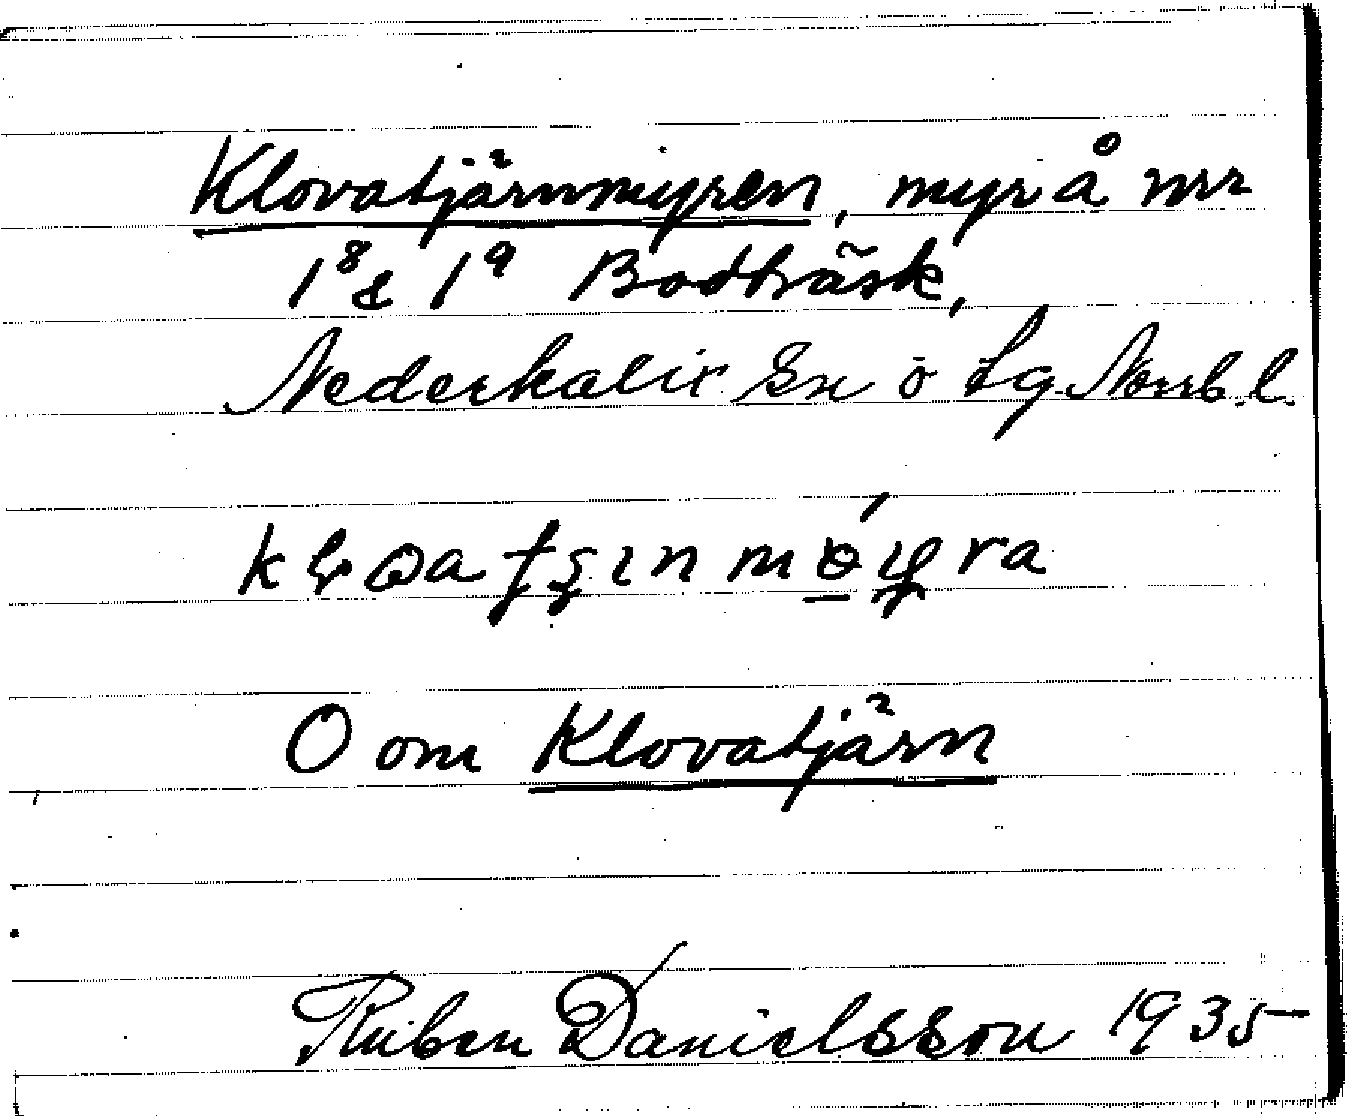 Klovatjärnmyren, myr å nrr
1⁸ & 1⁹ Bodträsk,
Nederkalix Sn ö. Lg. Norrb. l.
O om Klovatjärn
Ruben Danielsson 1935